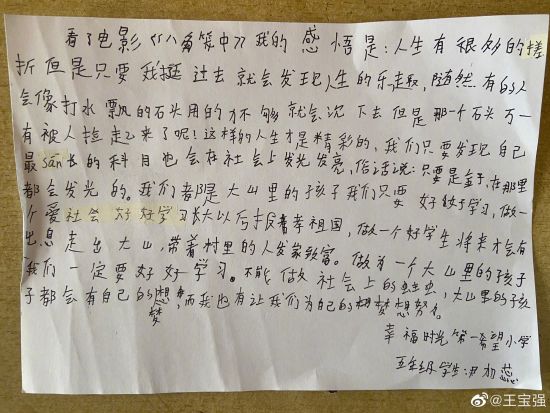 看了电影《八角笼中》我的感悟是:人生有很多的搓
折但是只要我挺过去就会发现人生的乐趣,随然有的人
会像打水飘的石头用的力不够就会沉下去但是那一个石头万一
有被人捡起来了呢!这样的人生才是精彩的,我们只要发现自己
最san长的科目也会在社会上发光发亮,俗话说:只要是金子,在那里
都会发光的。我们都是大山里的孩子我们只要好好学习,做一
个爱社会好好学习长大以后报孝祖国,做一个好学生将来才会有
出息走出大山,带着村里的人发家致富。做为一个大山里的孩子
我们一定要好好学习。不能做社会上的蛀虫,大山里的孩
子都会有自己的梦想,而我也有让我们为自己的梦想努力。
幸福时光第一希望小学
五年级学生:尹
@王宝强